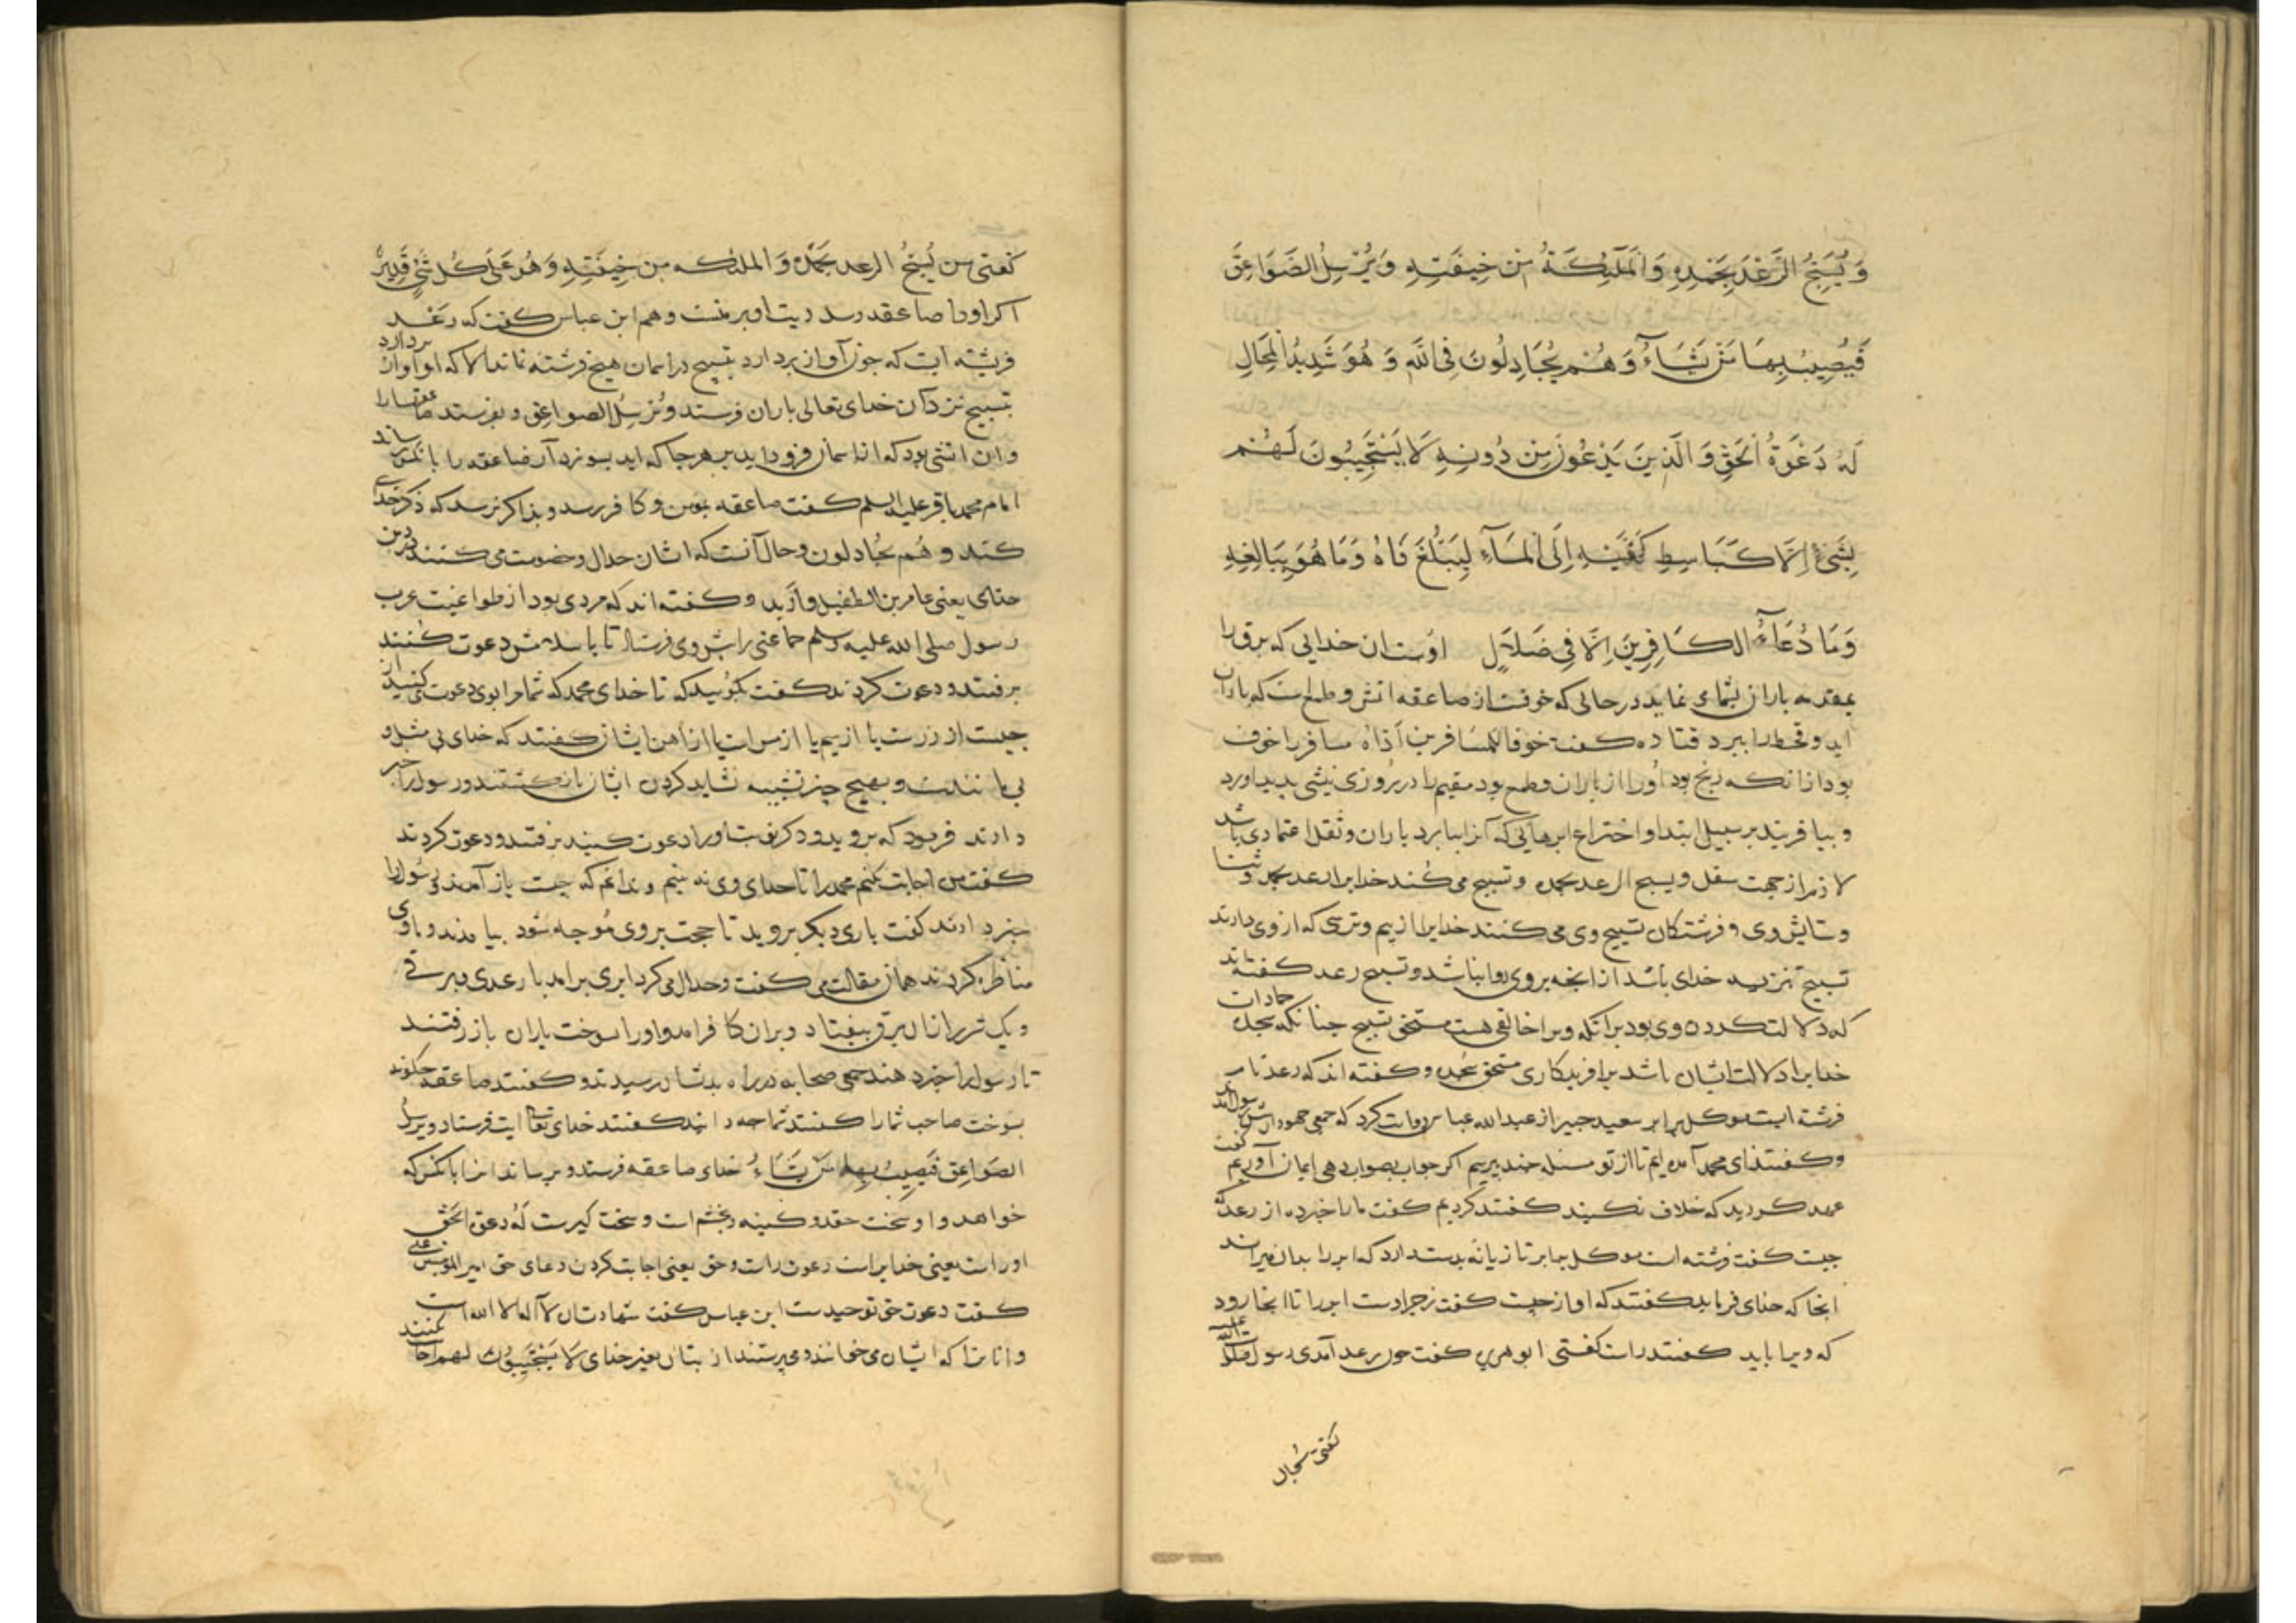 وَ يُسَبِّحُ الرَّعْدُ بِحَمْدِهِ وَ الْمَلَئِكَةُ مِنْ خِيفَتِهِ وَ يُرْسِلُ الصَّوَاعِقَ
فَيُصِيبُ بِهَا مَنْ يَشَآءُ وَ هُمْ يُجَادِلُونَ فِي اللَّهِ وَ هُوَ شَدِيدُ الْمِحَالِ
لَهُ دَعْوَةُ الْحَقِّ وَ الَّذِينَ يَدْعُونَ مِنْ دُونِهِ لَا يَسْتَجِيبُونَ لَهُمْ
بِشَيْءٍ اِلَّا كَبَاسِطِ كَفَّيْهِ اِلَى الْمَآءِ لِيَبْلُغَ فَاهُ وَ مَا هُوَ بِبَالِغِهِ
وَ مَا دُعَآءُ الكَافِرِينَ اِلَّا فِي ضَلَالٍ اوست ان خدایی که برق را
بمقدمه باران بشما می نماید در حالی که خوفست از صاعقه اتش و طمعست که باران
اید و قحط را ببرد قتاده کفت خوفا للمسافرین اذاه مسافر را خوف
بود از انکه رنج بود او را از باران و طمع بود مقیم را در روزی ینشی پدید اورد
و بیافریند بر سبیل ابتدا و اختراع ابرهایی که آنرا ببارد باران و ثقل اعتمادی باشد
لازم از جهت سفل و یسبح الرعد بحمده و تسبیح می کند خدایرا رعد بحمد و ثنا
و ستایش وی و فرشتکان تسبیح وی می کنند خدایرا از بیم و ترسی که از وی دارند
تسبیح تنزیه خدای باشد از انچه بر وی روا نباشد و تسبیح رعد کفته‌اند
که دلالت کردن وی بود برانکه ویرا خالقی هست مستحق تسبیح چنانکه سجده جمادات
خدایرا دلالت ایشان باشد بر افریدکاری مستحق سجده و کفته اند که رعد نام
فرشته ایست موکل بر ابر سعید جبیر از عبدالله عباس روایت کرد که جمعی جهودان پیش رسول آمدند
و کفتند ای محمد آمده ایم تا از تو مسئله چند بپرسیم اکر جواب بصواب دهی ایمان آوریم کفت
عهد کردید که خلاف نکنید کفتند کردیم کفت ما را خبر ده از رعد که
چیست کفت فرشته است موکل بر ابر تازیانه بدست دارد که ابر را بدان میراند
انجا که خدای فرماید کفتند که اواز چیست کفت زجر اوست ابر را تا انجا رود
که ویرا باید کفتند راست کفتی ابو هریره کفت چون رعد آمدی رسول صلوات الله علیه
کفتی سبحان
کفتی من یُسَبِّحُ الرعد بحمده وَ الملئکه من خِیفَتِهِ وَ هُوَ عَلَی کُلِّ شَیْءٍ قَدِیرٌ
اکر او را صاعقه رسد دیت او بر منست و هم ابن عباس کفت که رعد
فریشته ایست که چون آواز بردارد بتسبیح در اسمان هیچ فرشته نماند الا که او آواز بردارد
بتسبیح نزد آن خدای تعالی باران فرستد و یُرْسِلُ الصواعِقَ و بفرستد صاعقها را
و ان اتشی بود که از اسمان فرود اید بر هر جا که اید بسوزد آن صاعقه را بانکس رساند
امام محمد باقر علیه السلم کفت صاعقه بمومن و کافر رسد و بذاکر نرسد که ذکر خدای
کند و هُم یُجادلون و حال آنست که ایشان جدال و خصومت می کنند در دین
خدای یعنی عامر بن الطفیل و اَربد و کفته اند که مردی بود از طواغیت عرب
رسول صلی الله علیه و سلم جماعتی را پیش وی فرستاد تا باسلامش دعوت کنند
برفتند و دعوت کردند کفت بکوئید که تا خدای محمد که شما مرا بوی دعوت می کنید از
چیست از زرست یا از سیم یا از مس است یا از آهن ایشان کفتند که خدای بی مثل و
بی مانندست و بهیچ چیز تشبیه نشاید کردن ایشان باز کشتند و رسول را خبر
دادند فرمود که بروید و دکر نوبت او را دعوت کنید برفتند و دعوت کردند
کفت من اجابت نکنم محمد را تا خدای وی نه بینم و ندانم که چیست باز آمدند و رسول را
خبر دادند کفت باری دیکر بروید تا حجت بر وی مُوجه شود بیامدند و با وی
مناظره کردند همان مقالت می کفت و جدال می کرد ابری برامد با رعدی و برقی
و یک شرر از ان برق بیفتاد و بر ان کافر امد و او را بسوخت یاران باز رفتند
تا رسول را خبر دهند جمعی صحابه در راه بدیشان رسیدند و کفتند صاعقه چکونه
بسوخت صاحب شما را کفتند شما چه دانید کفتند خدای تعالی ایت فرستاد و یُرسِلُ
الصَوَاعِقَ فَیُصِیبُ بِهَا مَنْ یَشَاءُ خدای صاعقه فرستد و برساند انرا بانکس که
خواهد و او سخت حقد و کینه و بخشم است و سخت کیرست لَهُ دعوة الحَقِّ
اوراست یعنی خدایراست دعوت راست و حق یعنی اجابت کردن دعای حق امیرالمؤمنین علی
کفت دعوت حق توحیدست ابن عباس کفت شهادتان لا آله الا الله است
و انانرا که ایشان می خوانند و میپرستند از بتان بغیر خدای لَا یَسْتَجِیبُونَ لهم اجابت نکنند